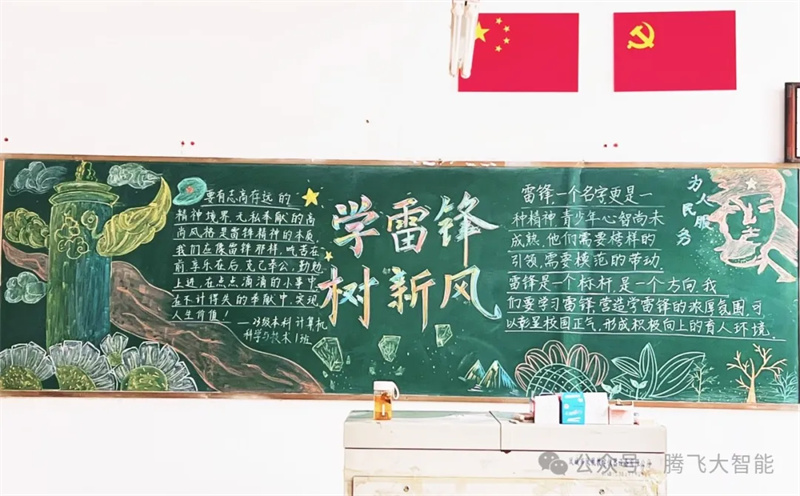 要有志高存远的
精神境界,无私奉献的高
尚风格是雷锋精神的本质,
我们应像雷锋那样,吃苦在
前享乐在后,克己奉公,勤勉
上进,在点点滴滴的小事中
在不计得失的奉献中,实现
人生价值!
级本科计算机
科学与技术1班
学雷锋
树新风
雷锋,一个名字更是一
种精神青少年心智尚未
成熟,他们需要榜样的
引领,需要模范的带动.
雷锋是一个标杆,是一个方向,我
们要学习雷锋,营造学雷锋的浓厚氛围,可
以彰呈校园正气,形成积极向上的育人环境.
为人民服务
公众号:腾飞大智能